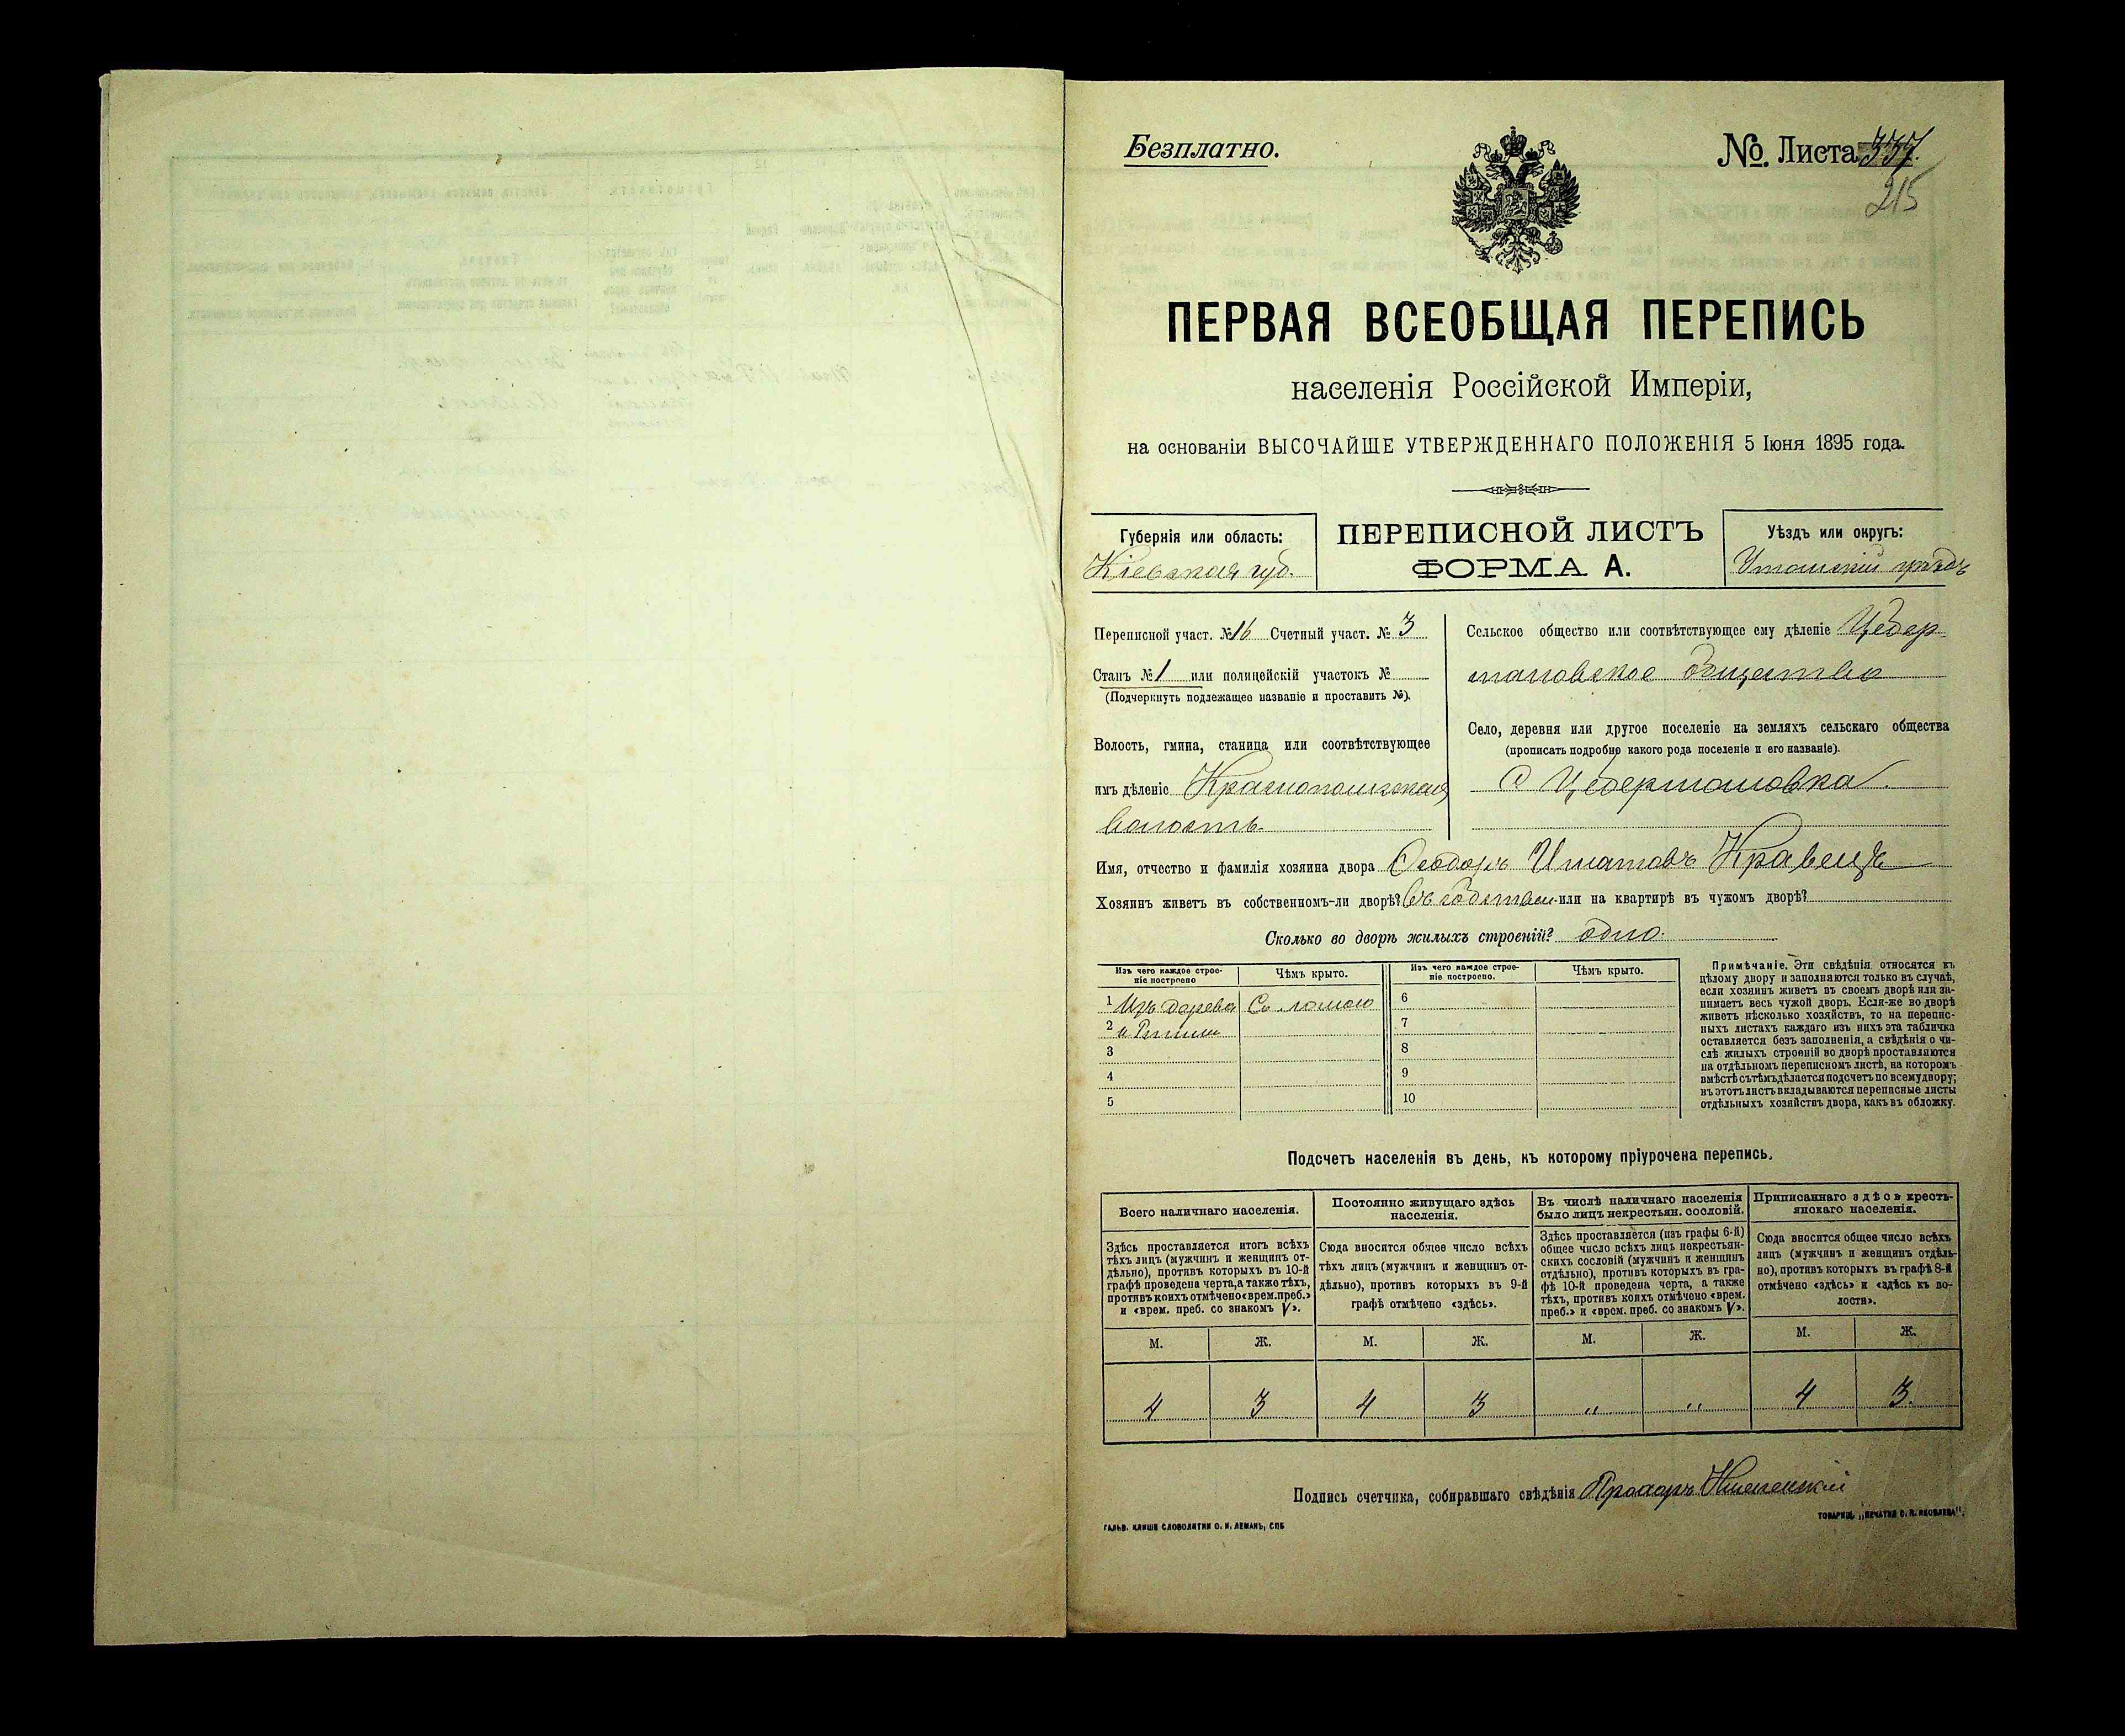 Безплатно.
№. Листа 337.
215
ПЕРВАЯ ВСЕОБЩАЯ ПЕРЕПИСЬ
населенія Россійской Имперіи,
на основаніи ВЫСОЧАЙШЕ УТВЕРЖДЕННАГО ПОЛОЖЕНІЯ 5 Іюня 1895 года.
Губернія или область:
Кіевская губ.
ПЕРЕПИСНОЙ ЛИСТЪ
ФОРМА А.
Уѣздъ или округъ:
Уманскій уѣздъ
Переписной участ. № 16 Счетный участ. № 3
Станъ № 1 или полицейскій участокъ №
(Подчеркнуть подлежащее названіе и проставить №).
Волость, гмина, станица или соотвѣтствующее
имъ дѣленіе Краснопольская
волость.
Сельское общество или соотвѣтствующее ему дѣленіе Цебер
мановское общество
Село, деревня или другое поселеніе на земляхъ сельскаго общества
(прописать подробно какого рода поселеніе и его названіе).
с Цебермановка
Имя, отчество и фамилія хозяина двора Ѳеодоръ Игнатовъ Кравецъ
Хозяинъ живетъ въ собственномъ-ли дворѣ? въ собствен. или на квартирѣ въ чужомъ дворѣ?
Сколько во дворѣ жилыхъ строеній? одно.
Изъ чего каждое строе-
ніе построено
Чѣмъ крыто.
Изъ чего каждое строе-
ніе построено.
Чѣмъ крыто.
1 Изъ дерева Соломою
2 и глины
3
4
5
6
7
8
9
10
Примѣчаніе. Эти свѣдѣнія относятся къ
цѣлому двору и заполняются только въ случаѣ,
если хозяинъ живетъ въ своемъ дворѣ или за-
нимаетъ весь чужой дворъ. Если-же во дворѣ
живетъ нѣсколько хозяйствъ, то на перепис-
ныхъ листахъ каждаго изъ нихъ эта табличка
оставляется безъ заполненія, а свѣдѣнія о чи-
слѣ жилыхъ строеній во дворѣ проставляются
на отдѣльномъ переписномъ листѣ, на которомъ
вмѣстѣ съ тѣмъ дѣлается подсчетъ по всему двору;
въ этотъ листъ вкладываются переписные листы
отдѣльныхъ хозяйствъ двора, какъ въ обложку.
Подсчетъ населенія въ день, къ которому пріурочена перепись.
Всего наличнаго населенія.
Здѣсь проставляется итогъ всѣхъ
тѣхъ лицъ (мужчинъ и женщинъ от-
дѣльно), противъ которыхъ въ 10-й
графѣ проведена черта, а также тѣхъ,
противъ коихъ отмѣчено «врем. преб.»
и «врем. преб. со знакомъ V».
Постоянно живущаго здѣсь
населенія.
Сюда вносится общее число всѣхъ
тѣхъ лицъ (мужчинъ и женщинъ от-
дѣльно), противъ которыхъ въ 9-й
графѣ отмѣчено «здѣсь».
Въ числѣ наличнаго населенія
было лицъ некрестьян. сословій.
Здѣсь проставляется (изъ графы 6-й)
общее число всѣхъ лицъ некрестьян-
скихъ сословій (мужчинъ и женщинъ
отдѣльно), противъ которыхъ въ гра-
фѣ 10-й проведена черта, а также
тѣхъ, противъ коихъ отмѣчено «врем.
преб.» и «врем. преб. со знакомъ V».
Приписаннаго здѣсь кресть-
янскаго населенія.
Сюда вносится общее число всѣхъ
лицъ (мужчинъ и женщинъ отдѣль-
но), противъ которыхъ въ графѣ 8-й
отмѣчено «здѣсь» и «здѣсь къ во-
лости».
М. Ж. М. Ж. М. Ж. М. Ж.
4 3 4 3 " " 4 3.
Подпись счетчика, собиравшаго свѣдѣнія Прохоръ
ГАЛЬВ. КЛИШЕ СЛОВОЛИТНИ О. И. ЛЕМАНЪ, СПБ
ТОВАРИЩ. „ПЕЧАТНЯ С. П. ЯКОВЛЕВА".